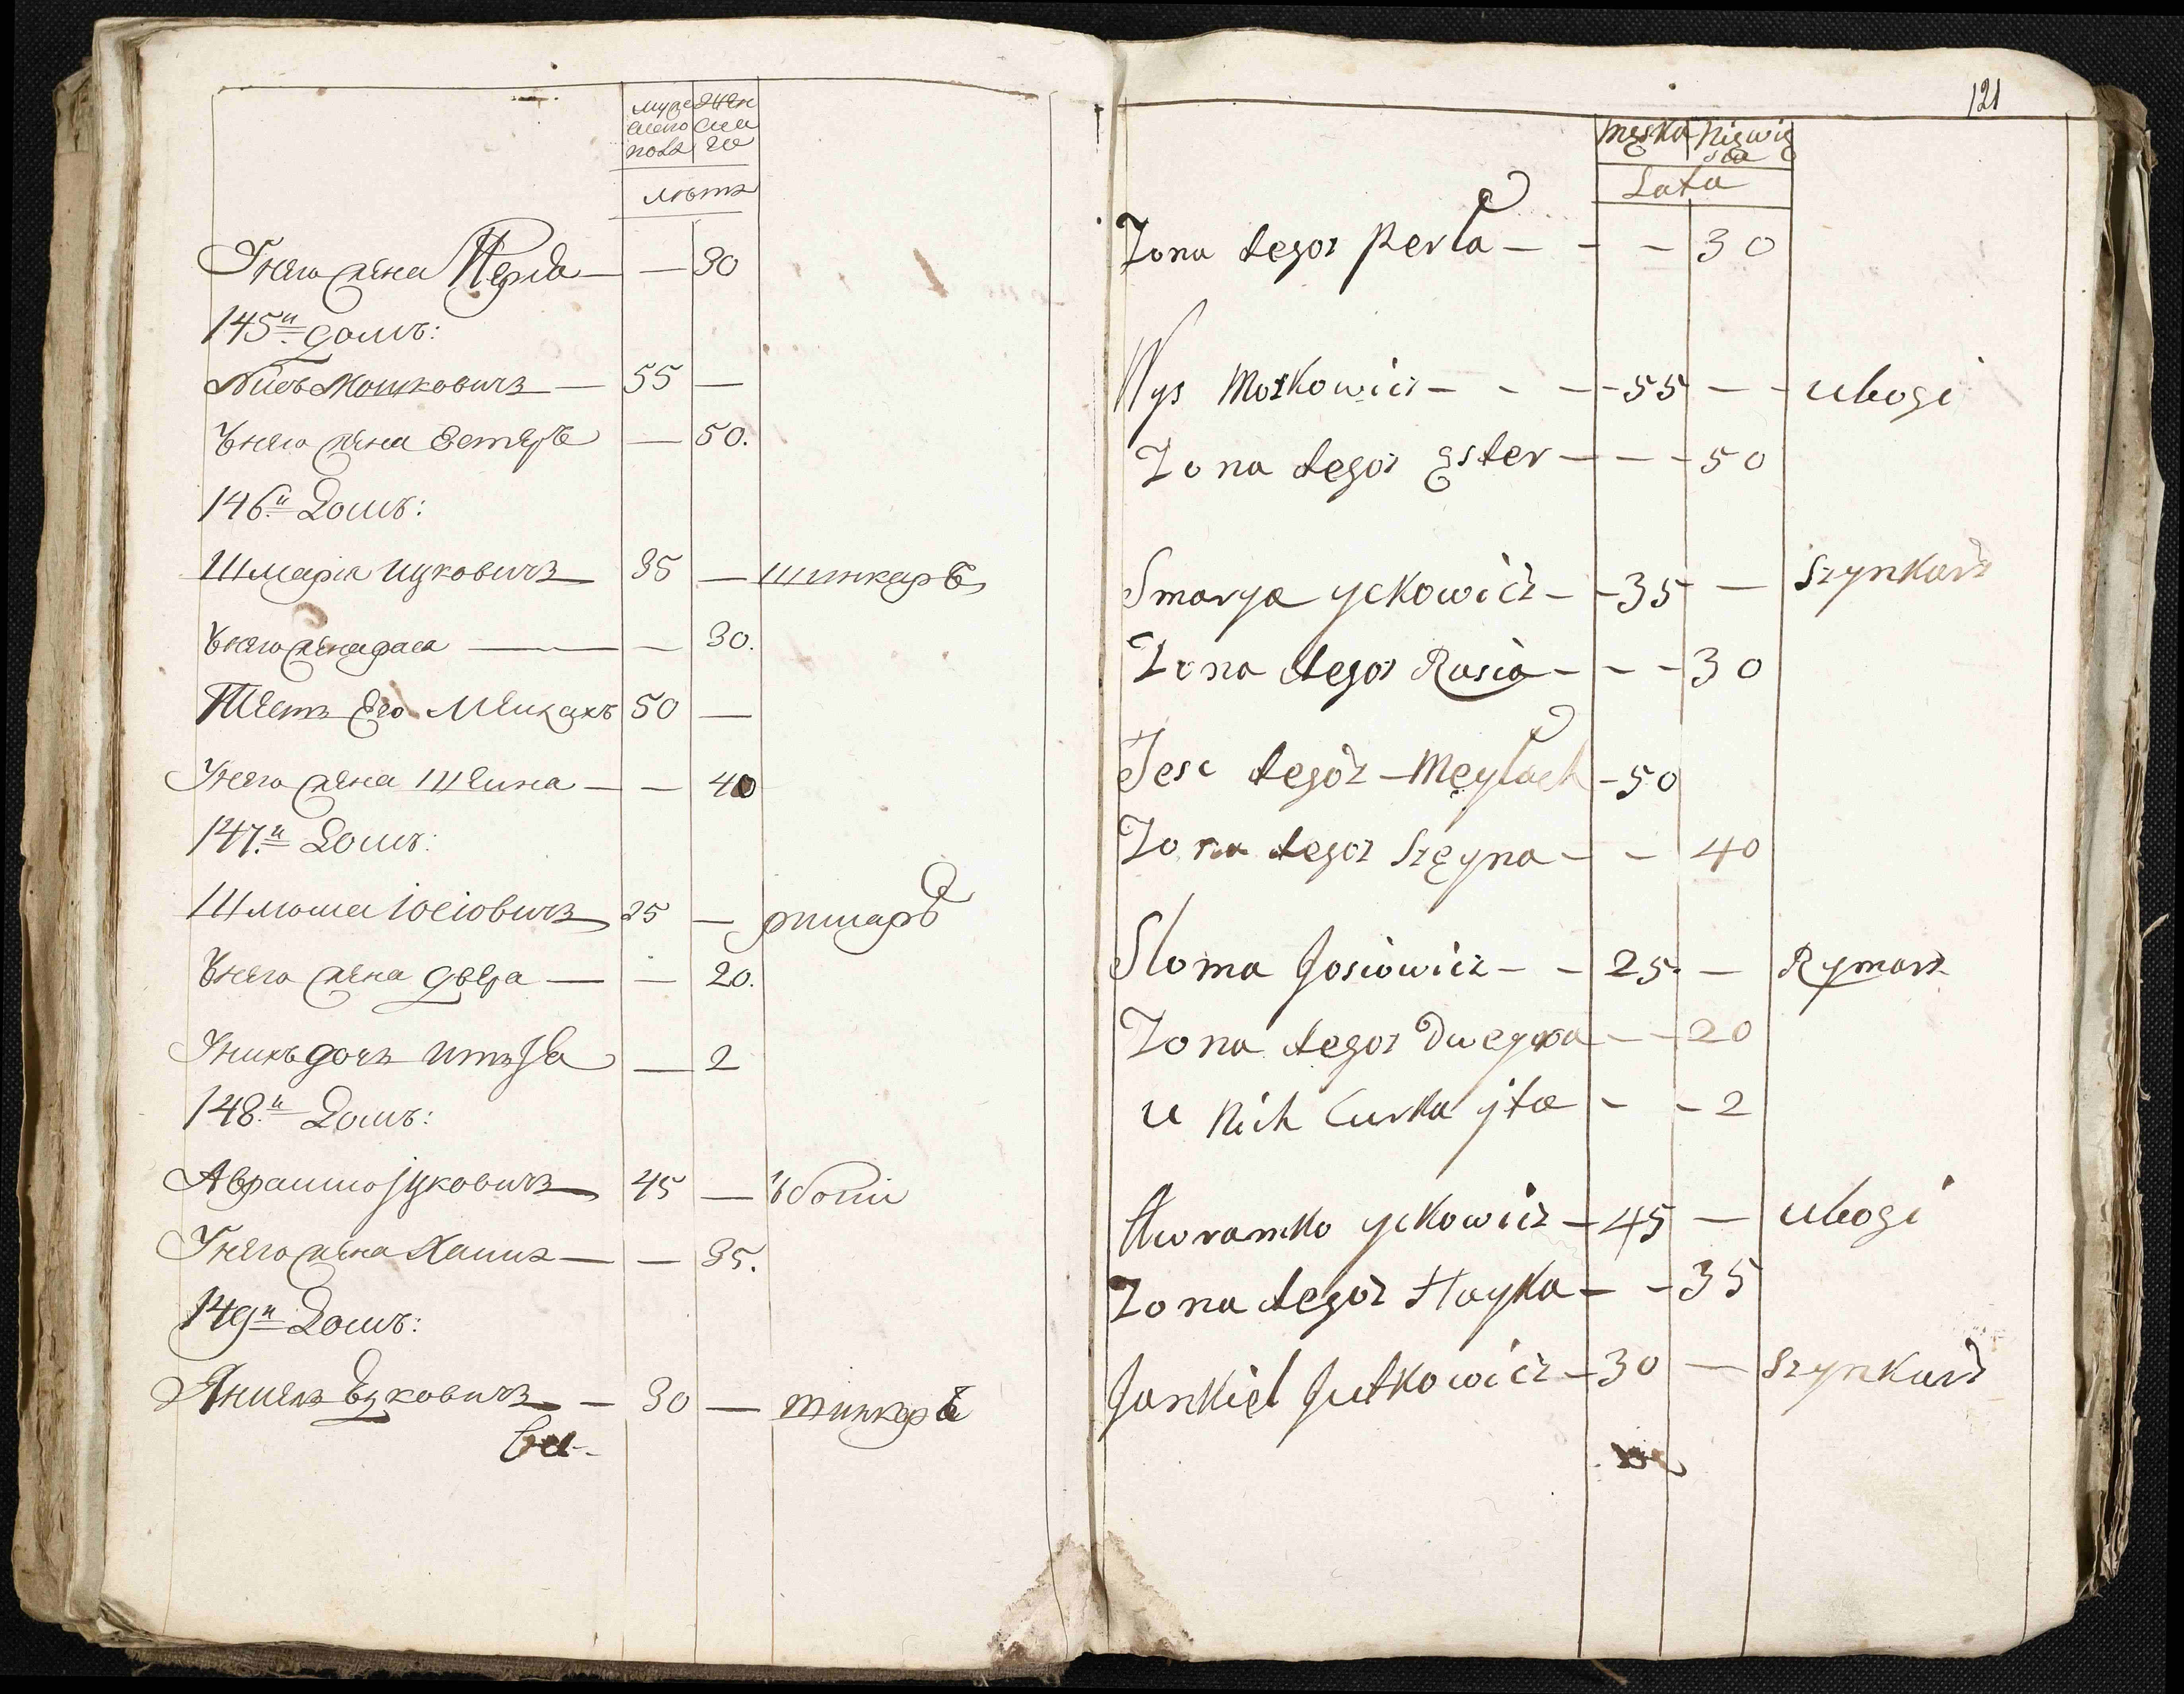 муже жен
скаго ска
полъ го
лѣтъ
У него жена Перла — — 30
145й домъ:
Нисъ Мошковичъ — 55 —
У него жена Естеръ — 50.
146й Домъ:
Шмарія Ицковичъ 35 — Шинкаръ
У него жена рася — — 30.
Тесть Его Меилахъ 50 —
У него жена Шеина — — 40
147й Домъ:
Шлюма Іосіовичъ 25 — римаръ
У него жена двера — — 20.
У нихъ дочь Итъ — 2
148й Домъ:
Аврамко Ицковичъ 45 — Убогій
У него жена Хаика — — 35.
149й Домъ:
Янкель Юдковичъ — 30 — шинкаръ
121
Męska Niewie
scia
Lata
Zona tegoz Perla — — — 30
Nys Moskowicz — — — 55 — — ubogi
Zona tegoz Ester — — — 50
Smarya yckowicz — — 35 — Szynkarz
Zona tegoz Rasia — — — 30
Tesc tegoz — Meylach — 50
Zona tegoz Szeyna — — 40
Sloma Josiowicz — — 25. — Rymarz
Zona tegoz Dweyra — — 20
u Nich Curka yta — — 2
Awramko yckowicz — 45 — ubogi
Zona tegoz Hayka — — 35
Jankiel Jutkowicz — 30 — Szynkarz